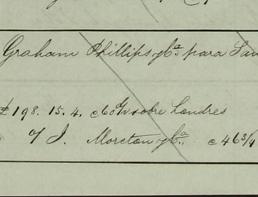 Graham Phillips y Ca para
£198.15.4. c60 d/v sobre Londres
o/ J. Moreton y Ca. c 46 3/4